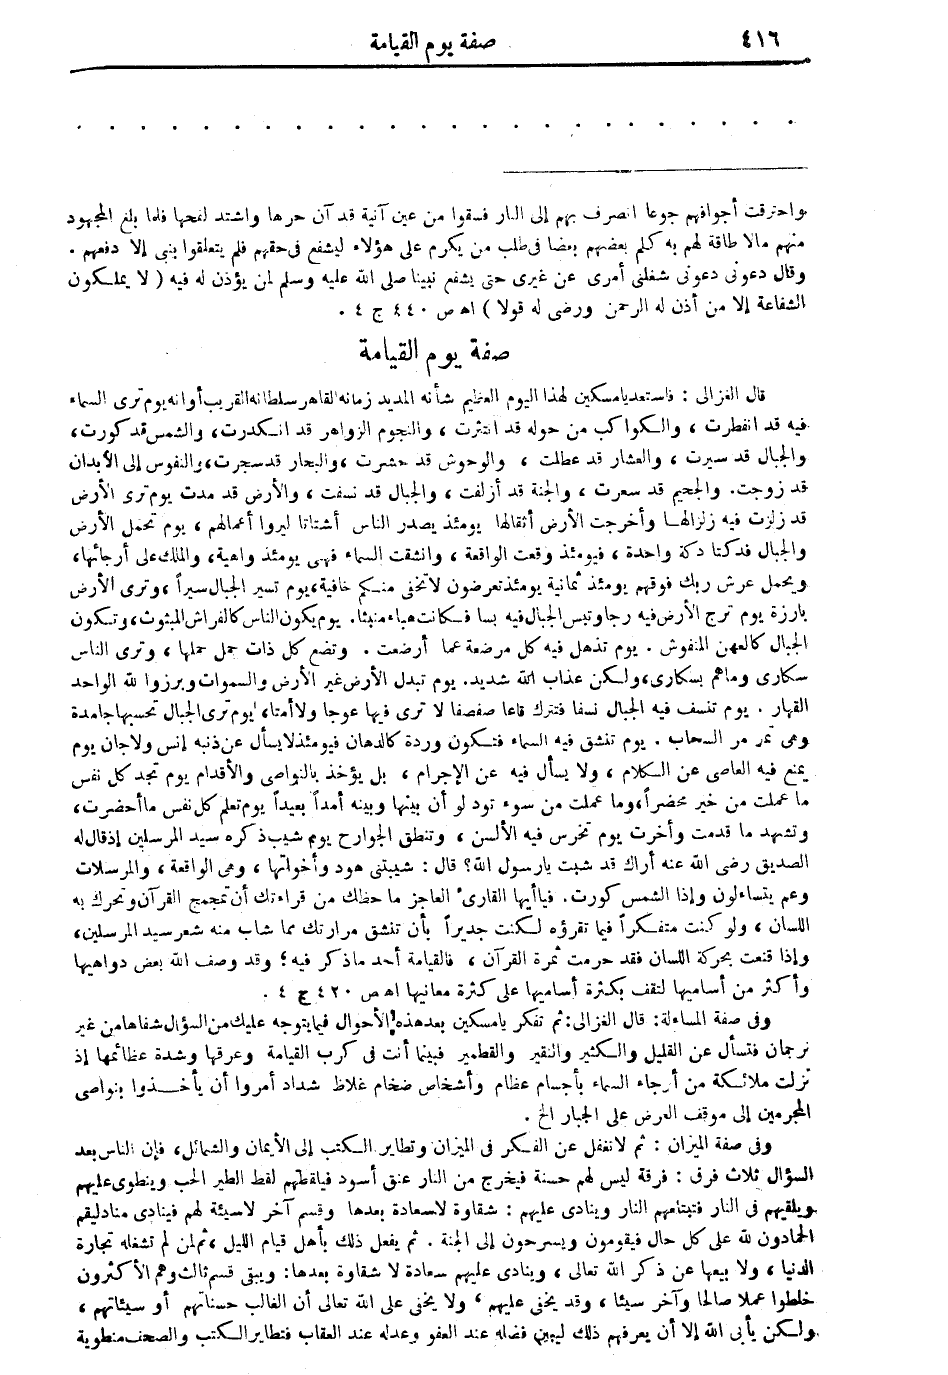 ٤١٦ صفة يوم القيامة
. . . . . . . . . . . . . . . . . . . . . . . .
واحترقت أجوافهم جوعا انصرف بهم إلى النار فسقوا من عين آنية قد آن حرها واشتد لفحها فلما بلغ المجهود
منهم مالا طاقة لهم به كلم بعضهم بعضا فى طلب من يكرم على هؤلاء ليشفع فى حقهم فلم يتعلقوا بنبى إلا دفعهم .
وقال دعونى دعونى شغلنى أمرى عن غيرى حتى يشفع نبينا صلى الله عليه وسلم لمن يؤذن له فيه ( لا يملكون
الشفاعة إلا من أذن له الرحمن ورضى له قولا ) اه ص ٤٤٠ ج ٤ .
صفة يوم القيامة
قال الغزالى : فاستعد يامسكين لهذا اليوم العظيم شأنه المديد زمانه القاهر سلطانه القريب أوانه يوم ترى السماء
فيه قد انفطرت ، والكواكب من حوله قد انتثرت ، والنجوم الزواهر قد انكدرت، والشمس قد كورت،
والجبال قد سيرت ، والعشار قد عطلت ، والوحوش قد حشرت ، والبحار قد سجرت، والنفوس إلى الأبدان
قد زوجت. والجحيم قد سعرت ، والجنة قد أزلفت ، والجبال قد نسفت ، والأرض قد مدت يوم ترى الأرض
قد زلزلت فيه زلزالها وأخرجت الأرض أثقالها يومئذ يصدر الناس أشتاتا ليروا أعمالهم ، يوم تحمل الأرض
والجبال فدكتا دكة واحدة ، فيومئذ وقعت الواقعة ، وانشقت السماء فهى يومئذ واهية، والملك على أرجائها،
ويحمل عرش ربك فوقهم يومئذ ثمانية يومئذ تعرضون لاتخفى منكم خافية، يوم تسير الجبال سيراً ، وترى الأرض
بارزة يوم ترج الأرض فيه رجا وتبس الجبال فيه بسا فكانت هباء منبثا. يوم يكون الناس كالفراش المبثوث، وتكون
الجبال كالعهن المنفوش . يوم تذهل فيه كل مرضعة عما أرضعت . وتضع كل ذات حمل حملها ، وترى الناس
سكارى وماهم بسكارى، ولكن عذاب الله شديد. يوم تبدل الأرض غير الأرض والسموات وبرزوا لله الواحد
القهار . يوم تنسف فيه الجبال نسفا فتترك قاعا صفصفا لا ترى فيها عوجا ولا أمتا، يوم ترى الجبال تحسبها جامدة
وهى تمر مر السحاب . يوم تنشق فيه السماء فتكون وردة كالدهان فيومئذ لايسأل عن ذنبه إنس ولاجان يوم
يمنع فيه العاصى عن الكلام ، ولا يسأل فيه عن الإجرام ، بل يؤخذ بالنواصى والأقدام يوم تجد كل نفس
ما عملت من خير محضراً، وما عملت من سوء تود لو أن بينها وبينه أمداً بعيداً يوم تعلم كل نفس ما أحضرت،
وتشهد ما قدمت وأخرت يوم تخرس فيه الألسن ، وتنطق الجوارح يوم شيب ذكره سيد المرسلين إذ قال له
الصديق رضى الله عنه أراك قد شبت يارسول الله؟ قال : شيبتنى هود وأخواتها ، وهى الواقعة ، والمرسلات
وعم يتساءلون وإذا الشمس كورت. فياأيها القارئ العاجز ما حظك من قراءتك أن تمجمج القرآن وتحرك به
اللسان ، ولو كنت متفكراً فيما تقرؤه لكنت جديراً بأن تنشق مرارتك مما شاب منه شعر سيد المرسلين،
وإذا قنعت بحركة اللسان فقد حرمت ثمرة القرآن ، فالقيامة أحد ماذكر فيه؛ وقد وصف الله بعض دواهيها
وأكثر من أساميها لتقف بكثرة أساميها على كثرة معانيها اه ص ٤٢٠ ج ٤ .
وفى صفة المساءلة: قال الغزالى: ثم تفكر يامسكين بعد هذه الأحوال فيما يتوجه عليك من السؤال شفاها من غير
ترجمان فتسأل عن القليل والكثير والنقير والقطمير فبينما أنت فى كرب القيامة وعرقها وشدة عظائمها إذ
نزلت ملائكة من أرجاء السماء بأجسام عظام وأشخاص ضخام غلاظ شداد أمروا أن يأخذوا بنواصى
المجرمين إلى موقف العرض على الجبار الخ .
وفى صفة الميزان : ثم لاتغفل عن الفكر فى الميزان وتطاير الكتب إلى الأيمان والشمائل، فإن الناس بعد
السؤال ثلاث فرق : فرقة ليس لهم حسنة فيخرج من النار عنق أسود فيلقطهم لقط الطير الحب وينطوى عليهم
ويلقيهم فى النار فتبتلعهم النار وينادى عليهم : شقاوة لاسعادة بعدها وقسم آخر لاسيئة لهم فينادى مناد ليقم
الحمادون لله على كل حال فيقومون ويسرحون إلى الجنة . ثم يفعل ذلك بأهل قيام الليل ، ثم لمن لم تشغله تجارة
الدنيا ، ولا بيعها عن ذكر الله تعالى ، وينادى عليهم سعادة لا شقاوة بعدها: ويبقى قسم ثالث وهم الأكثرون
خلطوا عملا صالحا وآخر سيئا ، وقد يخفى عليهم ، ولا يخفى على الله تعالى أن الغالب حسناتهم أو سيئاتهم ،
ولكن يأبى الله إلا أن يعرفهم ذلك ليبين فضله عند العفو وعدله عند العقاب فتطاير الكتب والصحف منطوية